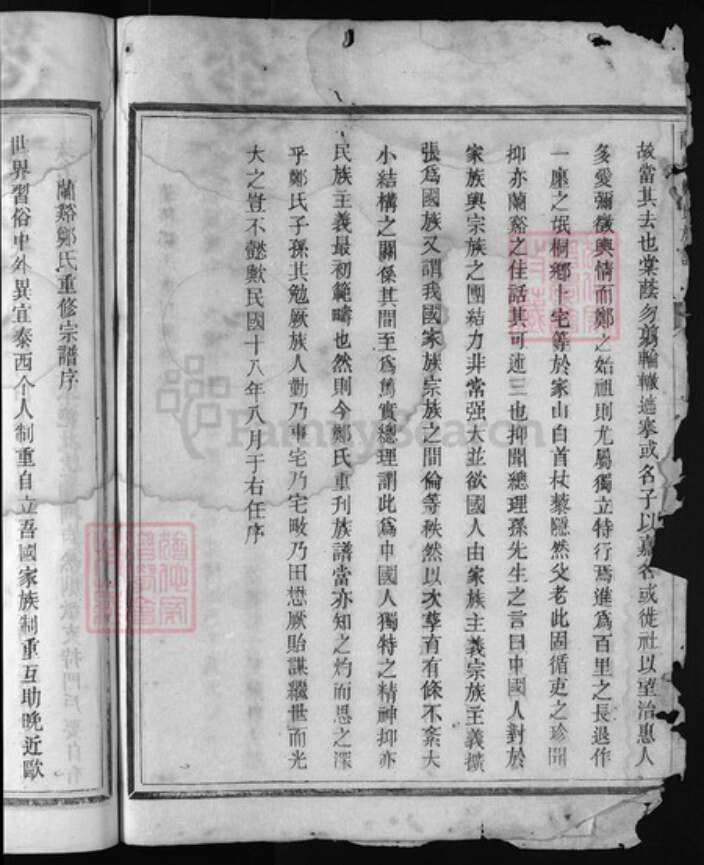 故當其去也棠蔭勿翦輪轍遮攀或名子以嘉名或徙社以望治惠人
多愛彌徵輿情而鄭之始祖則尤屬獨立特行焉進爲百里之長退作
一廛之氓桐鄉卜宅等於家山白首杖藜隱然父老此固循吏之珍聞
抑亦蘭谿之佳話其可述三也抑聞總理孫先生之言曰中國人對於
家族與宗族之團結力非常强大並欲國人由家族主義宗族主義擴
張爲國族又謂我國家族宗族之間倫等秩然以次孳育有條不紊大
小結構之關係其間至爲篤實總理謂此爲中國人獨特之精神抑亦
民族主義最初範疇也然則今鄭氏重刊族譜當亦知之灼而思之深
乎鄭氏子孫其勉厥族人勤乃事宅乃宅畋乃田懋厥貽謀繼世而光
大之豈不懿歟民國十八年八月于右任序
蘭谿鄭氏重修宗譜序
世界習俗中外異宜泰西个人制重自立吾國家族制重互助晚近歐
FamilySearch